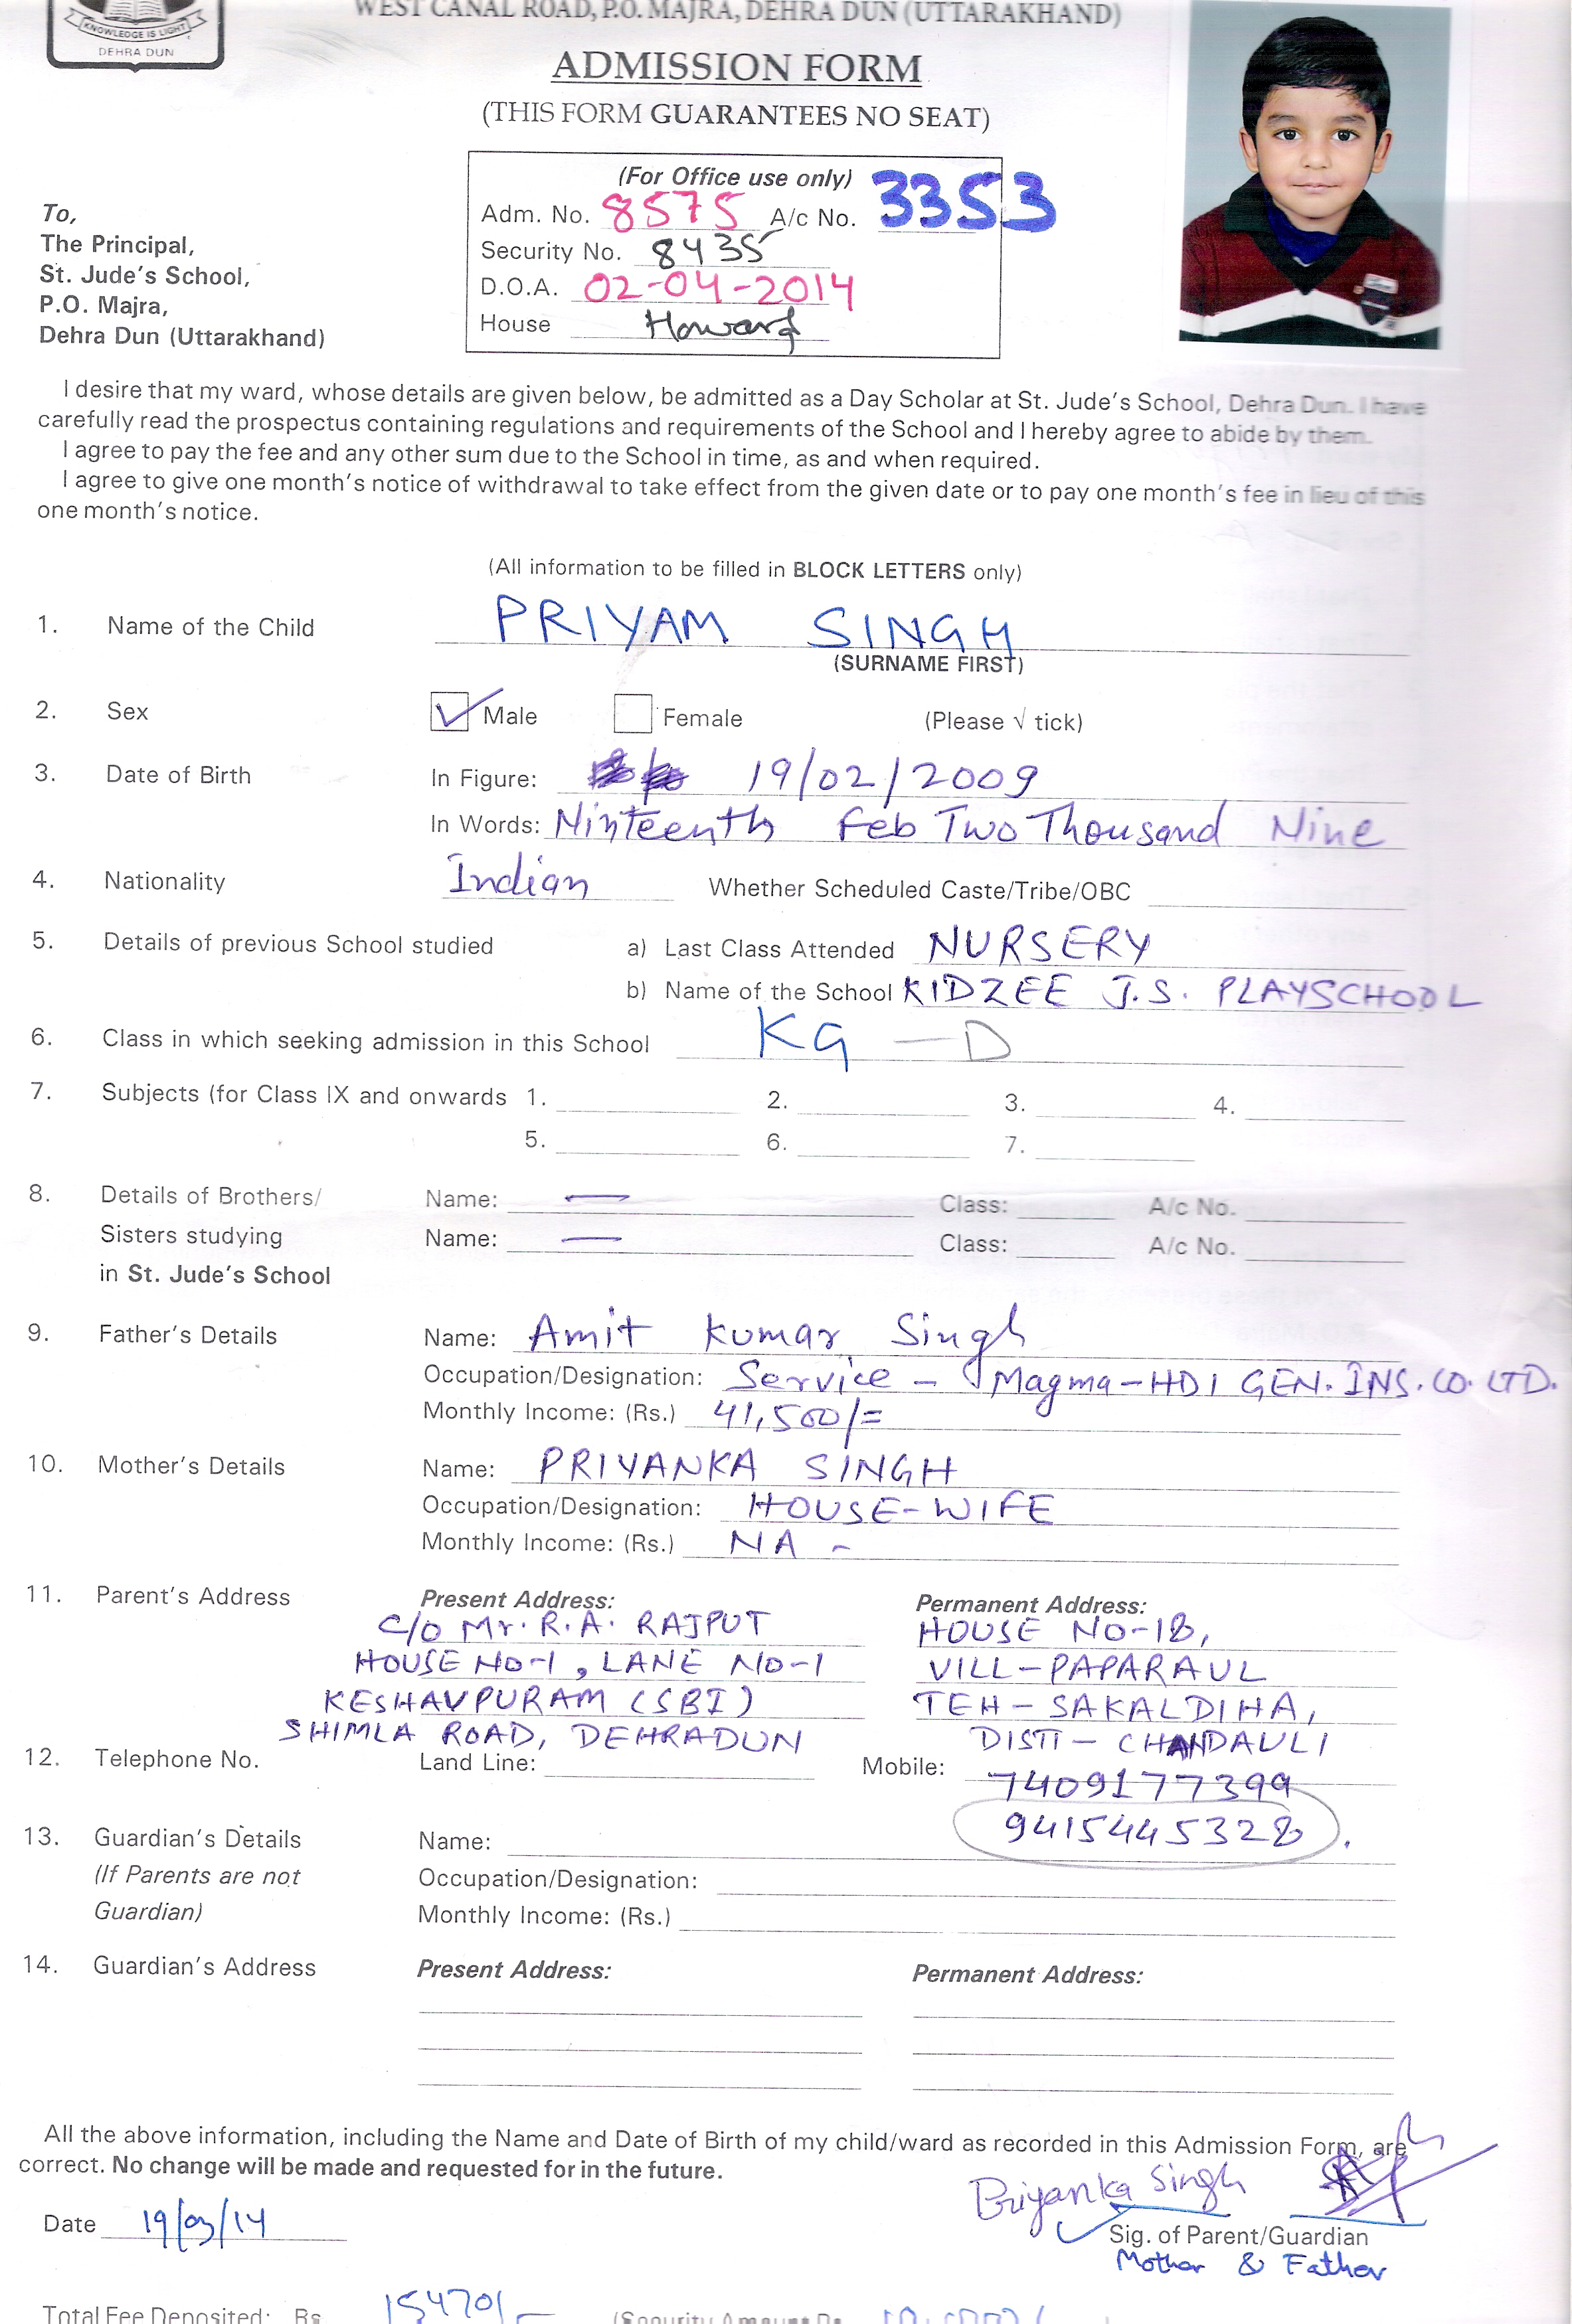 WEST CANAL ROAD, P.O. MAJRA, DEHRA DUN (UTTARAKHAND)
KNOWLEDGE IS LIGHT
DEHRA DUN
ADMISSION FORM
(THIS FORM GUARANTEES NO SEAT)
(For Office use only)
Adm. No. 8575 A/c No. 3353
Security No. 8435
D.O.A. 02-04-2014
House Howard
To,
The Principal,
St. Jude's School,
P.O. Majra,
Dehra Dun (Uttarakhand)
I desire that my ward, whose details are given below, be admitted as a Day Scholar at St. Jude's School, Dehra Dun. I have
carefully read the prospectus containing regulations and requirements of the School and I hereby agree to abide by them.
I agree to pay the fee and any other sum due to the School in time, as and when required.
I agree to give one month's notice of withdrawal to take effect from the given date or to pay one month's fee in lieu of this
one month's notice.
(All information to be filled in BLOCK LETTERS only)
1. Name of the Child PRIYAM SINGH
(SURNAME FIRST)
2. Sex Male Female (Please √ tick)
3. Date of Birth In Figure: 19/02/2009
In Words: Ninteenth Feb Two Thousand Nine
4. Nationality Indian Whether Scheduled Caste/Tribe/OBC
5. Details of previous School studied a) Last Class Attended NURSERY
b) Name of the School KIDZEE J.S. PLAYSCHOOL
6. Class in which seeking admission in this School KG - D
7. Subjects (for Class IX and onwards 1. 2. 3. 4.
5. 6. 7.
8. Details of Brothers/ Name: — Class: A/c No.
Sisters studying Name: — Class: A/c No.
in St. Jude's School
9. Father's Details Name: Amit Kumar Singh
Occupation/Designation: Service - Magma-HDI GEN. INS. CO. LTD.
Monthly Income: (Rs.) 41,500/=
10. Mother's Details Name: PRIYANKA SINGH
Occupation/Designation: HOUSE-WIFE
Monthly Income: (Rs.) NA -
11. Parent's Address Present Address: Permanent Address:
C/O Mr. R.A. RAJPUT HOUSE NO-18,
HOUSE NO-1, LANE NO-1 VILL-PAPARAUL
KESHAVPURAM (SBI) TEH-SAKALDIHA,
SHIMLA ROAD, DEHRADUN DISTT- CHANDAULI
12. Telephone No. Land Line: Mobile: 7409177399
9415445328.
13. Guardian's Details Name:
(If Parents are not Occupation/Designation:
Guardian) Monthly Income: (Rs.)
14. Guardian's Address Present Address: Permanent Address:
All the above information, including the Name and Date of Birth of my child/ward as recorded in this Admission Form, are
correct. No change will be made and requested for in the future.
Priyanka Singh
Date 19/03/14 Sig. of Parent/Guardian
Mother & Father
Total Fee Deposited: Rs 15470/- (Security Amount Rs